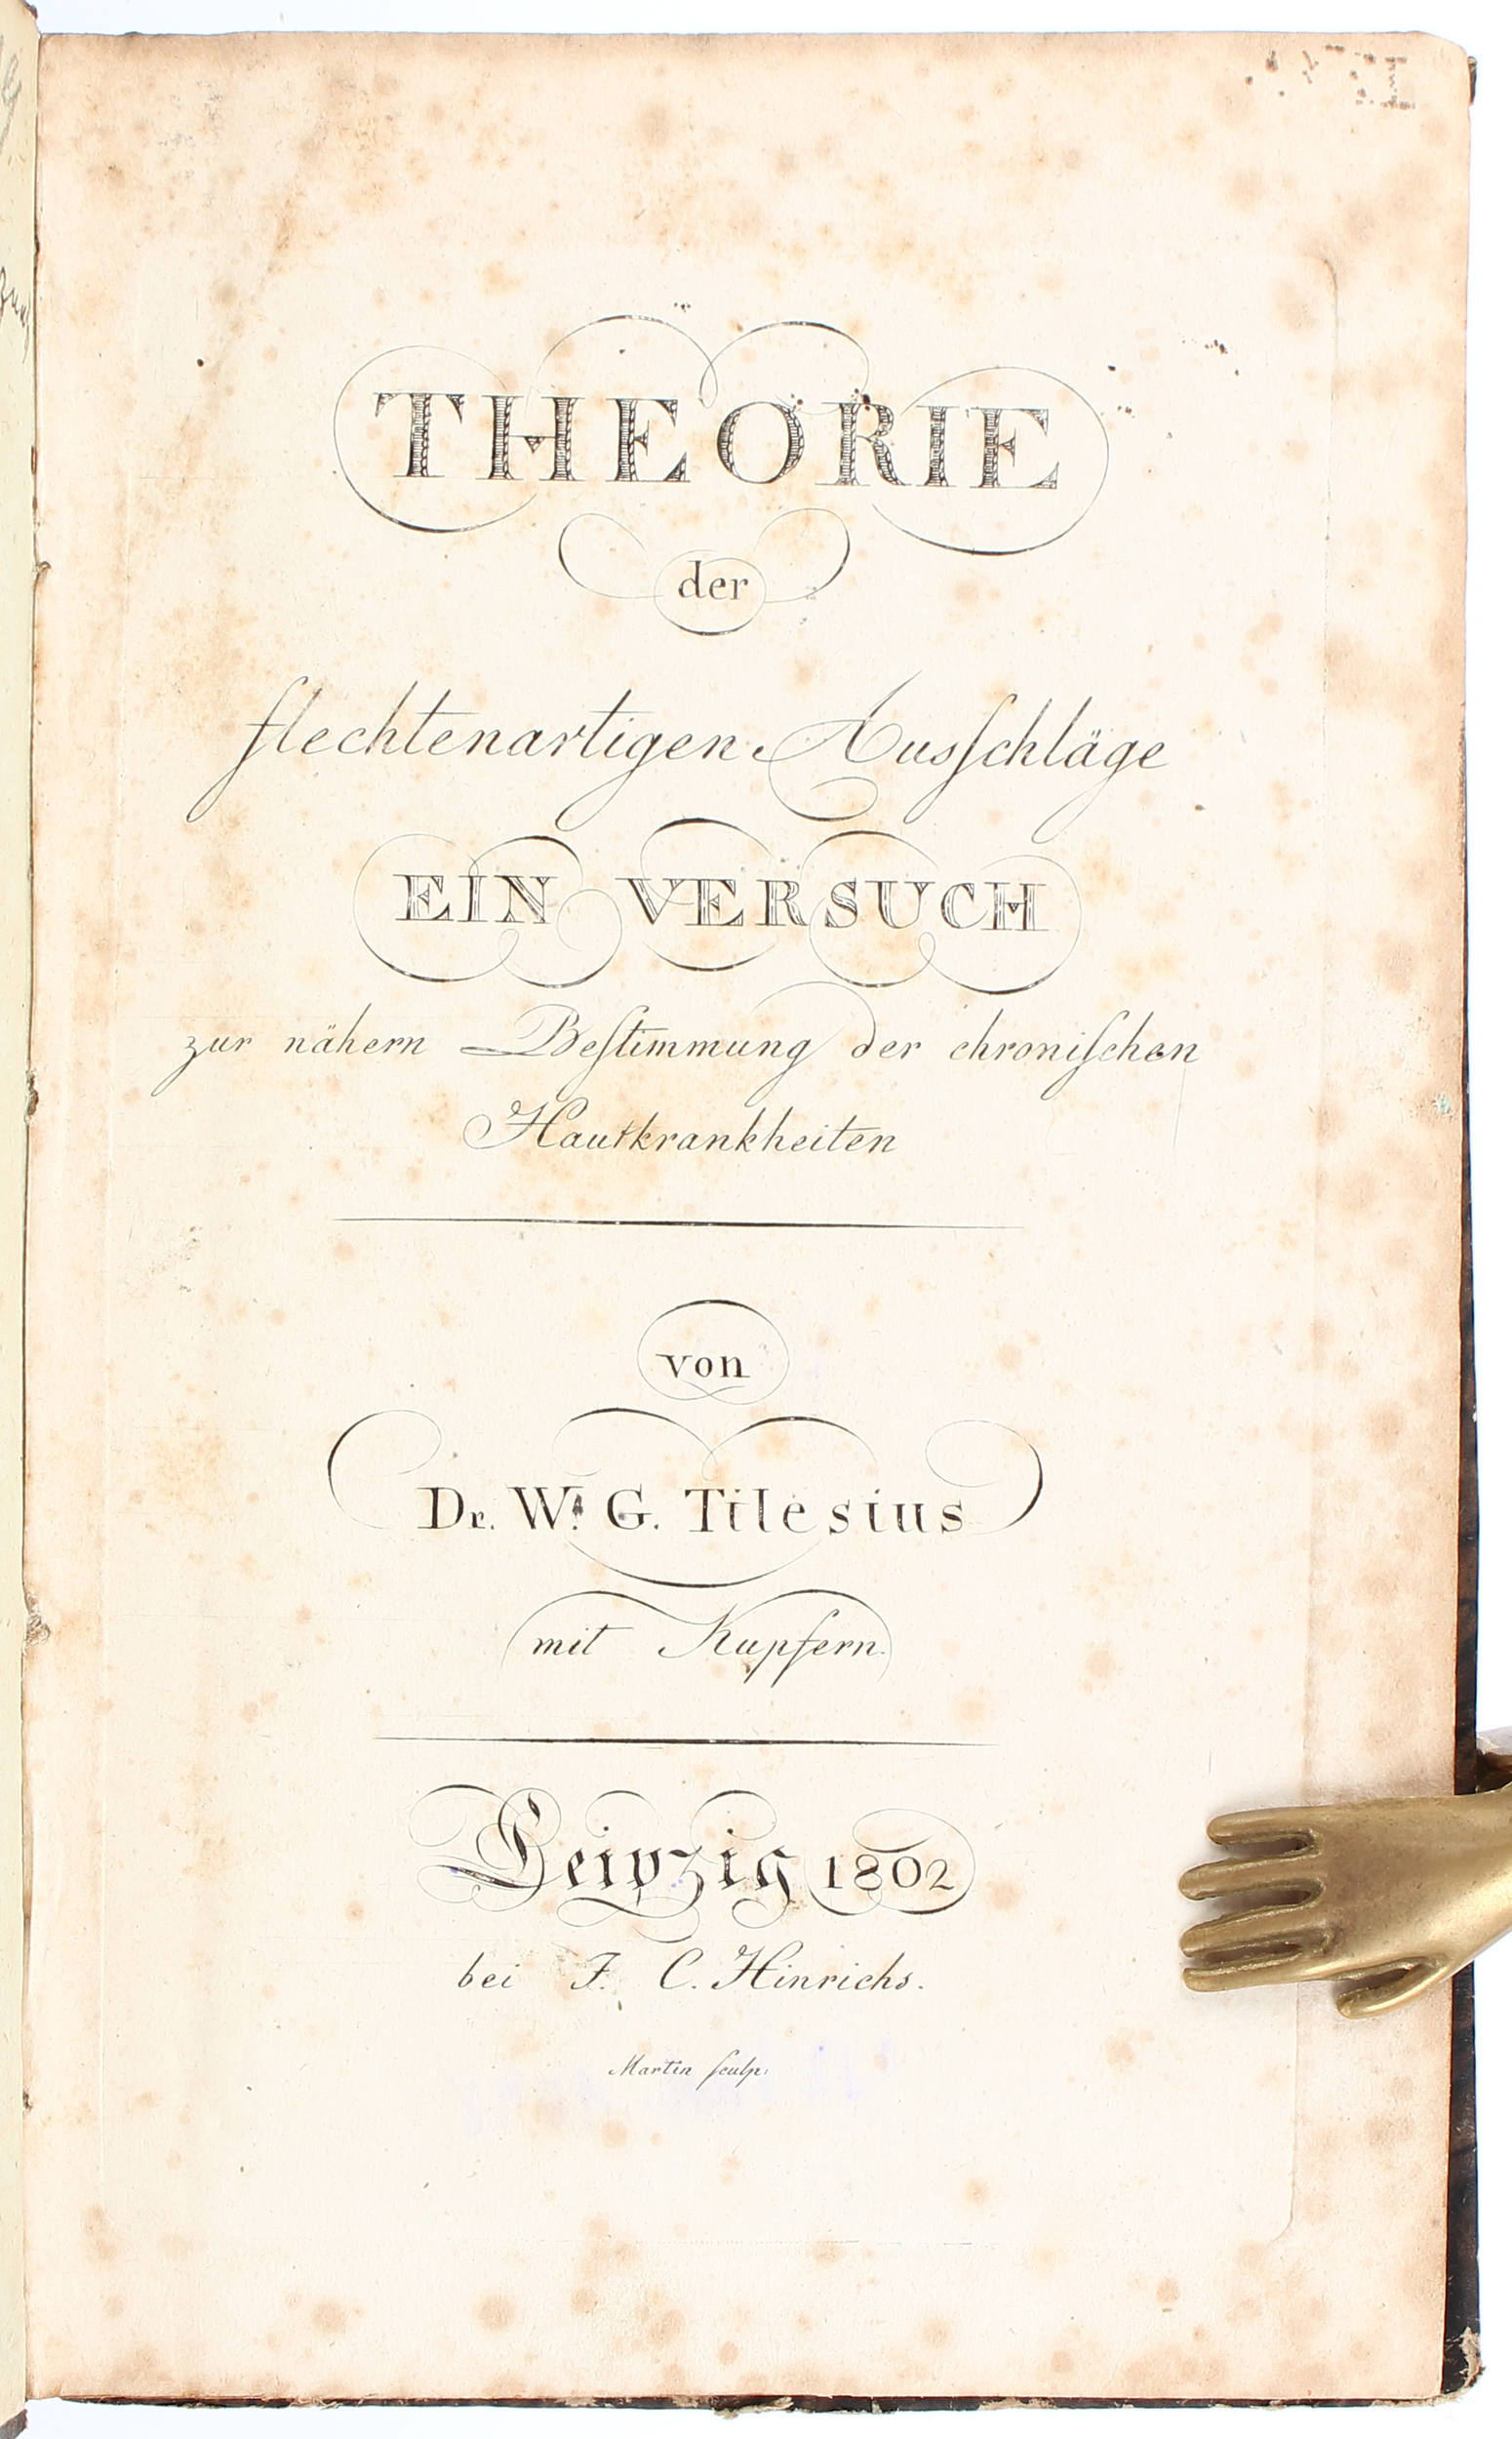 THEORIE
der
flechtenartigen Ausſchläge
EIN VERSUCH
zur nähern Beſtimmung der chroniſchen
Hautkrankheiten
von
Dr. W. G. Tilesius
mit Kupfern.
Leipzig 1802
bei F. C. Hinrichs.
Martin ſculp: